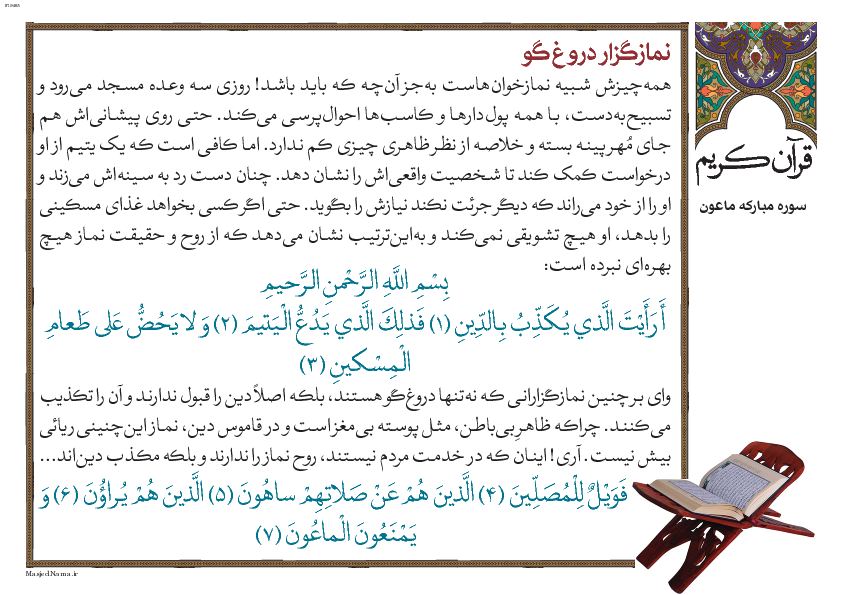 نمازگزار دروغ‌گو
همه‌چیزش شبیه نمازخوان‌هاست به‌جز آن‌چه که باید باشد! روزی سه وعده مسجد می‌رود و
تسبیح‌به‌دست، با همه پول‌دارها و کاسب‌ها احوال‌پرسی می‌کند. حتی روی پیشانی‌اش هم
جای مُهر پینه بسته و خلاصه از نظر ظاهری چیزی کم ندارد. اما کافی است که یک یتیم از او
درخواست کمک کند تا شخصیت واقعی‌اش را نشان دهد. چنان دست رد به سینه‌اش می‌زند و
او را از خود می‌راند که دیگر جرئت نکند نیازش را بگوید. حتی اگر کسی بخواهد غذای مسکینی
را بدهد، او هیچ تشویقی نمی‌کند و به‌این‌ترتیب نشان می‌دهد که از روح و حقیقت نماز هیچ
بهره‌ای نبرده است:
بِسْمِ اللَّهِ الرَّحْمنِ الرَّحيمِ
أَ رَأَيْتَ الَّذي يُكَذِّبُ بِالدِّينِ (۱) فَذلِكَ الَّذي يَدُعُّ الْيَتيمَ (۲) وَ لا يَحُضُّ عَلى طَعامِ
الْمِسْكينِ (۳)
وای بر چنین نمازگزارانی که نه‌تنها دروغ‌گو هستند، بلکه اصلاً دین را قبول ندارند و آن را تکذیب
می‌کنند. چراکه ظاهرِ بی‌باطن، مثل پوسته بی‌مغز است و در قاموس دین، نماز این‌چنینی ریائی
بیش نیست. آری! اینان که در خدمت مردم نیستند، روح نماز را ندارند و بلکه مکذب دین‌اند...
فَوَيْلٌ لِلْمُصَلِّينَ (۴) الَّذينَ هُمْ عَنْ صَلاتِهِمْ ساهُونَ (۵) الَّذينَ هُمْ يُراؤُنَ (۶) وَ
يَمْنَعُونَ الْماعُونَ (۷)
قرآن کریم
سوره مبارکه ماعون
MasjedNama.ir